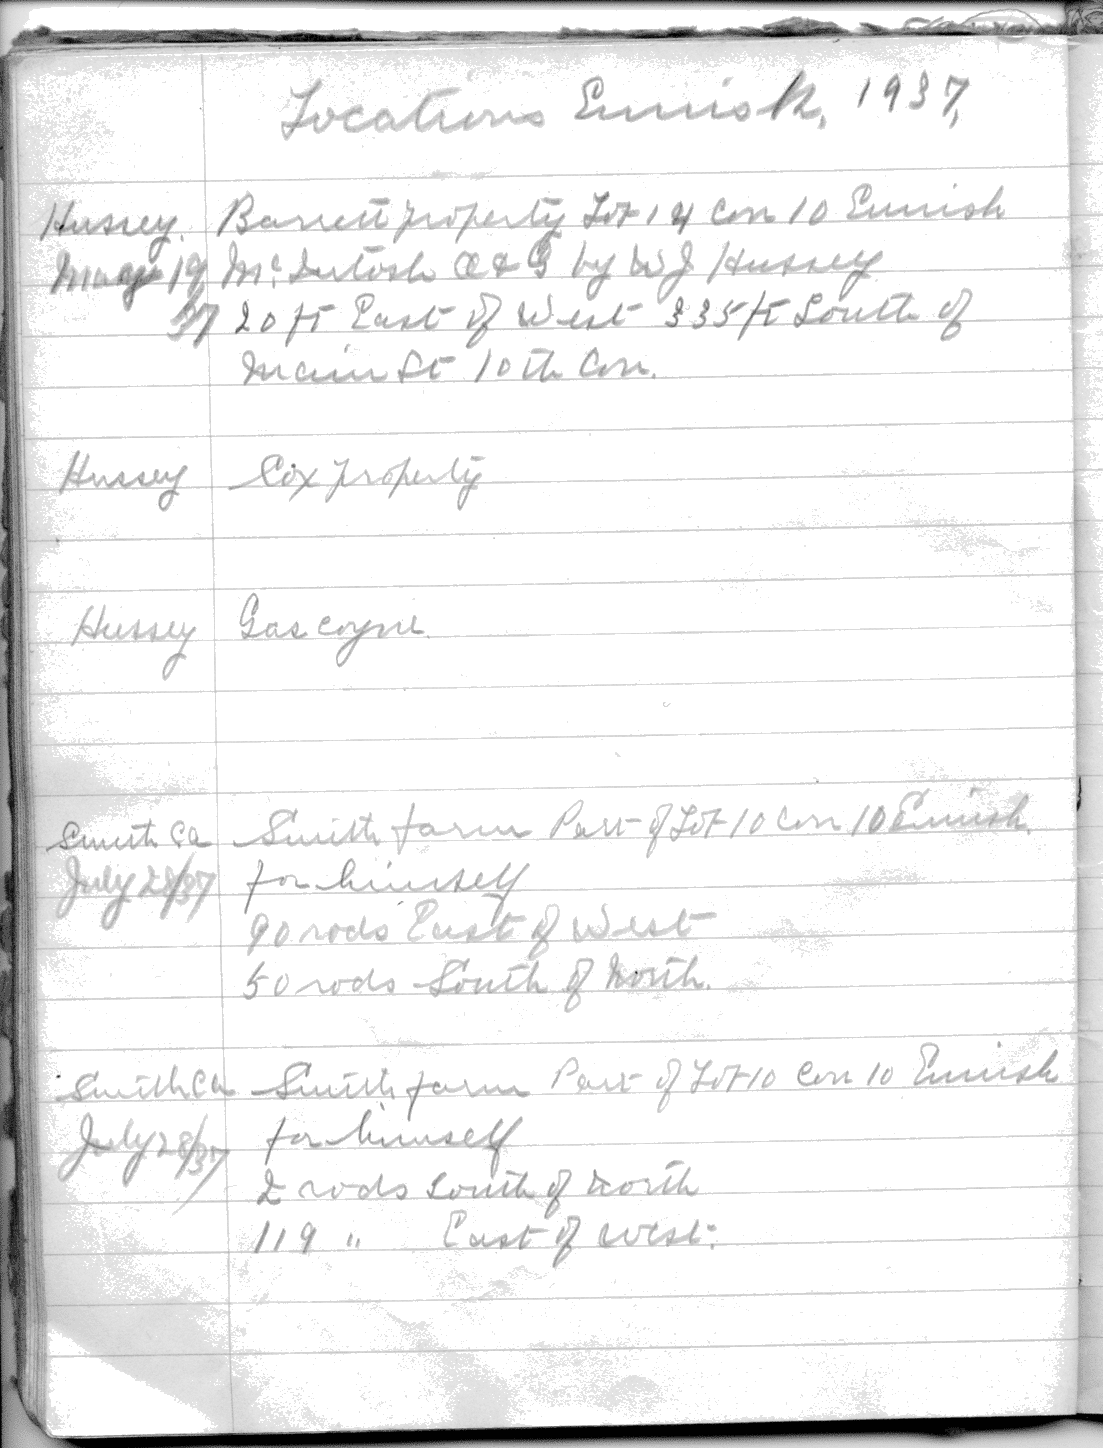 Locations Ennisk, 1937,
Hussey. Barrett property Lot 14 Con 10 Ennisk
May 19 McIntosh O & G by W J Hussey
37 20 ft East of West 335 ft South of
Main St 10th Con.
Hussey Cox property
Hussey Gascoyne
Smith Ca Smith farm Part of Lot 10 Con 10 Ennisk.
July 28/37 for himself
90 rods East of West
50 rods South of North.
Smith Ca Smith farm Part of Lot 10 Con 10 Ennisk
July 28/37 for himself
2 rods South of North
119 " East of West.